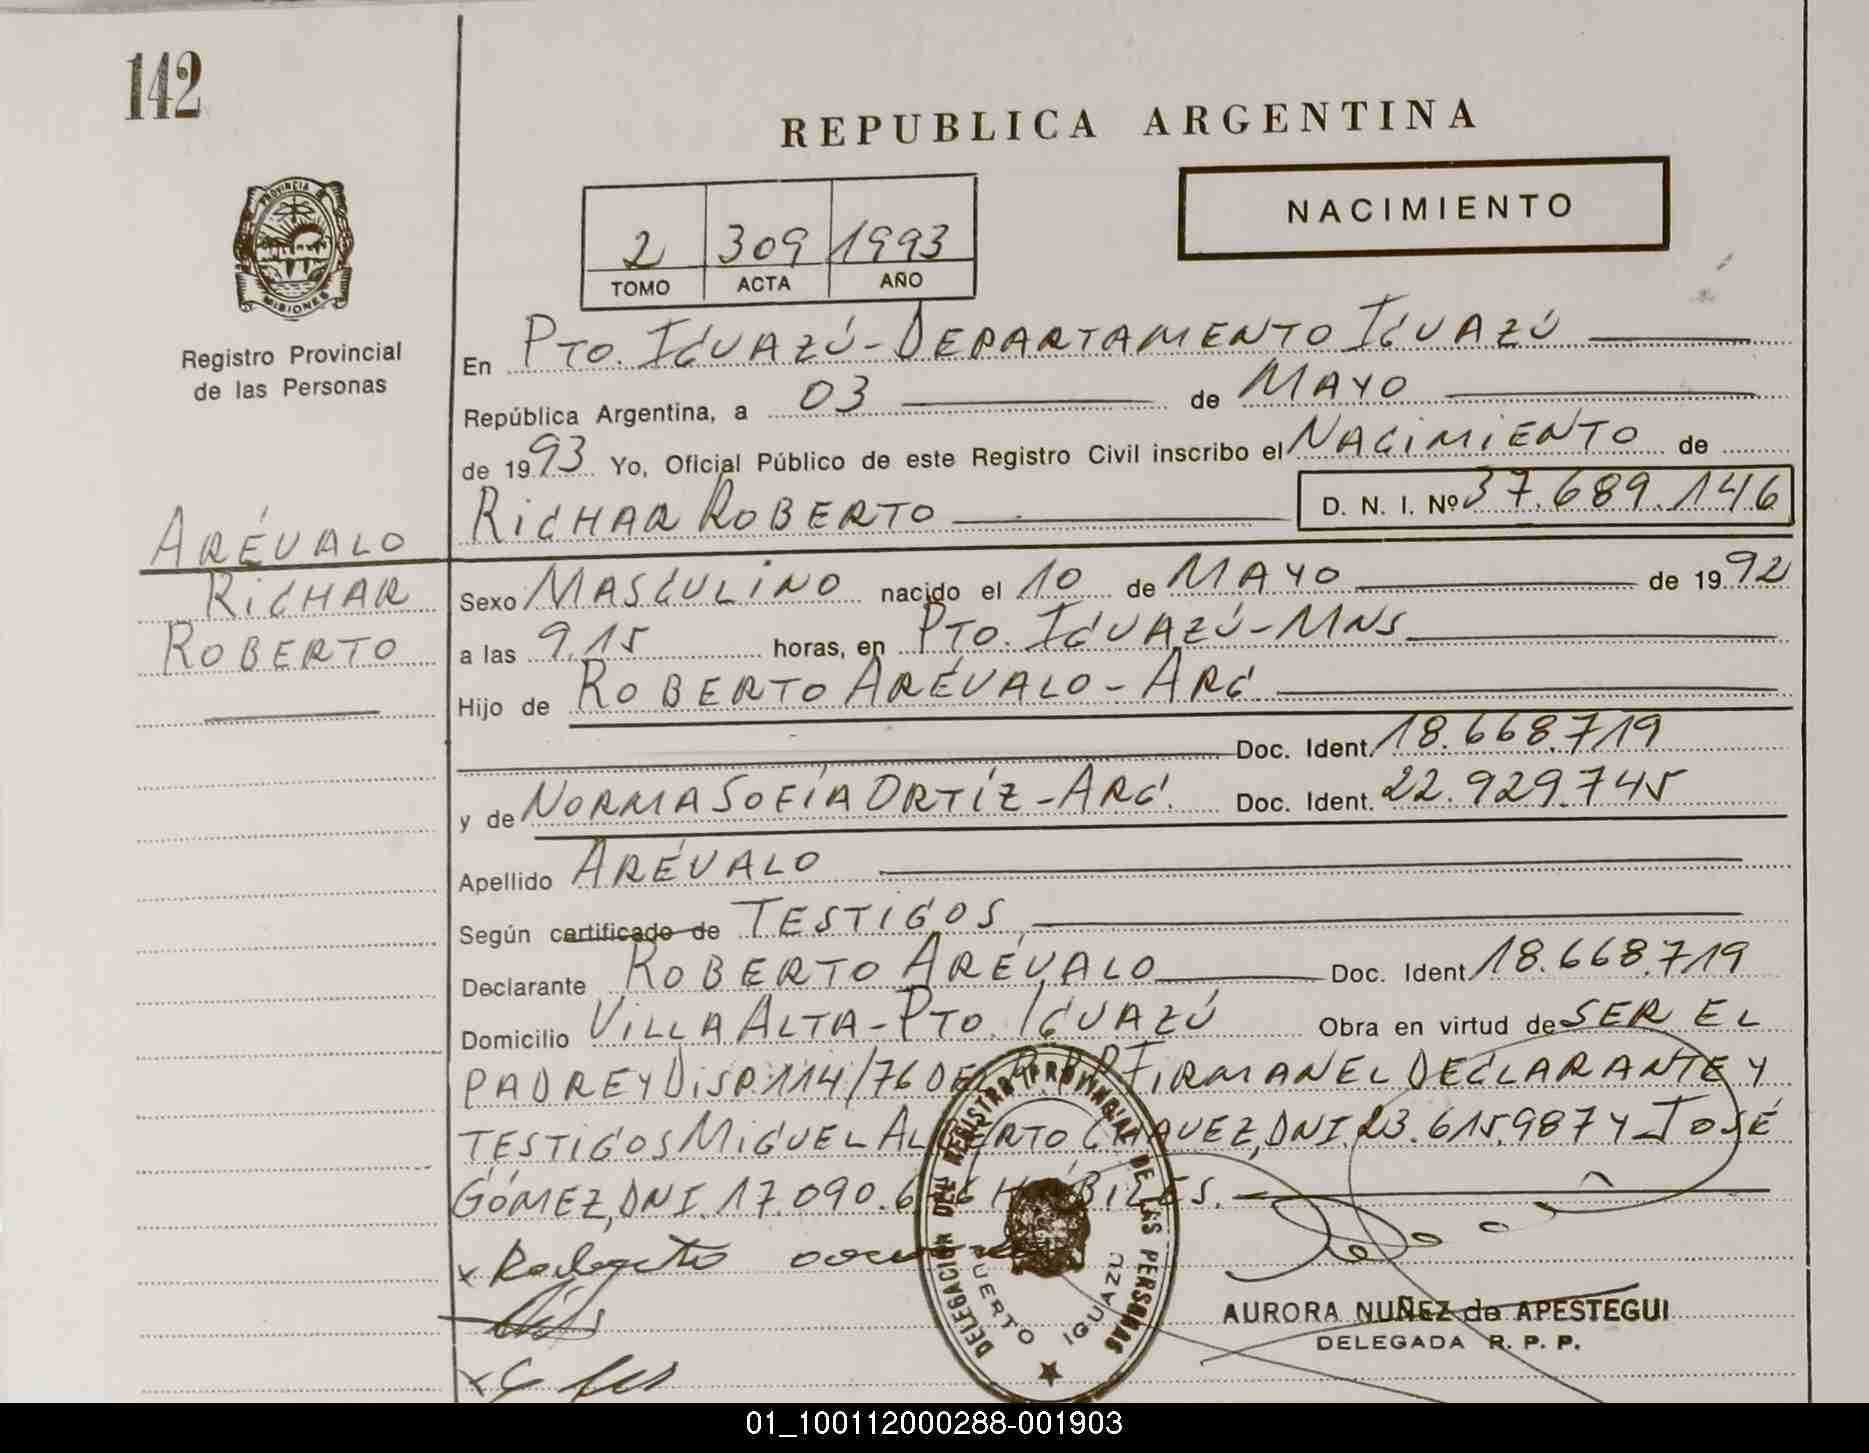 142
REPUBLICA ARGENTINA
NACIMIENTO
2 309 1993
TOMO ACTA AÑO
PROVINCIA DE MISIONES
Registro Provincial
de las Personas
En PTO. IGUAZÚ - DEPARTAMENTO IGUAZÚ
República Argentina, a 03 de MAYO
de 1993 Yo, Oficial Público de este Registro Civil inscribo el NACIMIENTO de
RICHAR ROBERTO D. N. I. Nº 37.689.146
ARÉVALO
RICHAR
ROBERTO
Sexo MASCULINO nacido el 10 de MAYO de 1992
a las 9.15 horas, en PTO. IGUAZÚ - MNS
Hijo de ROBERTO ARÉVALO - ARG
Doc. Ident. 18.668.719
y de NORMA SOFÍA ORTÍZ - ARG. Doc. Ident. 22.929.745
Apellido ARÉVALO
Según certificado de TESTIGOS
Declarante ROBERTO ARÉVALO Doc. Ident. 18.668.719
Domicilio VILLA ALTA - PTO. IGUAZÚ Obra en virtud de SER EL
PADRE Y DISP. 114/76 DEL FIRMAN EL DECLARANTE Y
TESTIGOS MIGUEL ALBERTO CHAVEZ, DNI 23.615.987 Y JOSÉ
GÓMEZ, DNI. 17.090. HÁBILES.
DELEGACION DEL REGISTRO PROVINCIAL DE LAS PERSONAS
PUERTO IGUAZU
AURORA NUÑEZ de APESTEGUI
DELEGADA R. P. P.
01_100112000288-001903